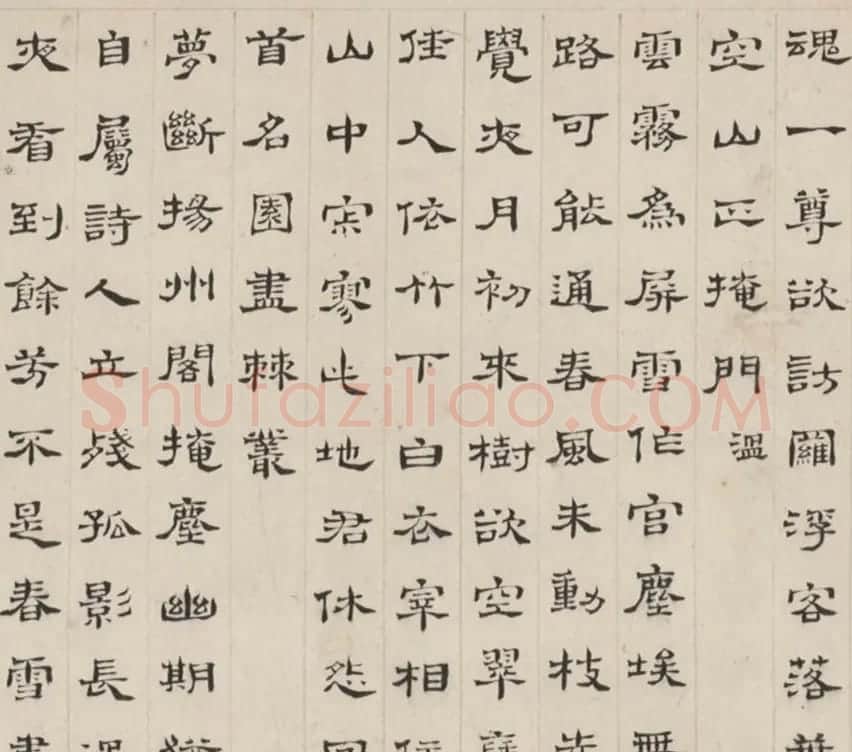 魂一尊欲訪羅浮客落葉
空山正掩門溫
雲霧為屏雪作宮塵埃無
路可能通春風未動枝先
覺夜月初來樹欲空翠
佳人依竹下白衣宰相住
山中寂寥此地君休怨回
首名園盡棘叢
夢斷揚州閣掩塵幽期猶
自屬詩人立殘孤影長過
夜看到餘芳不是春雪
Shufaziliao.COM